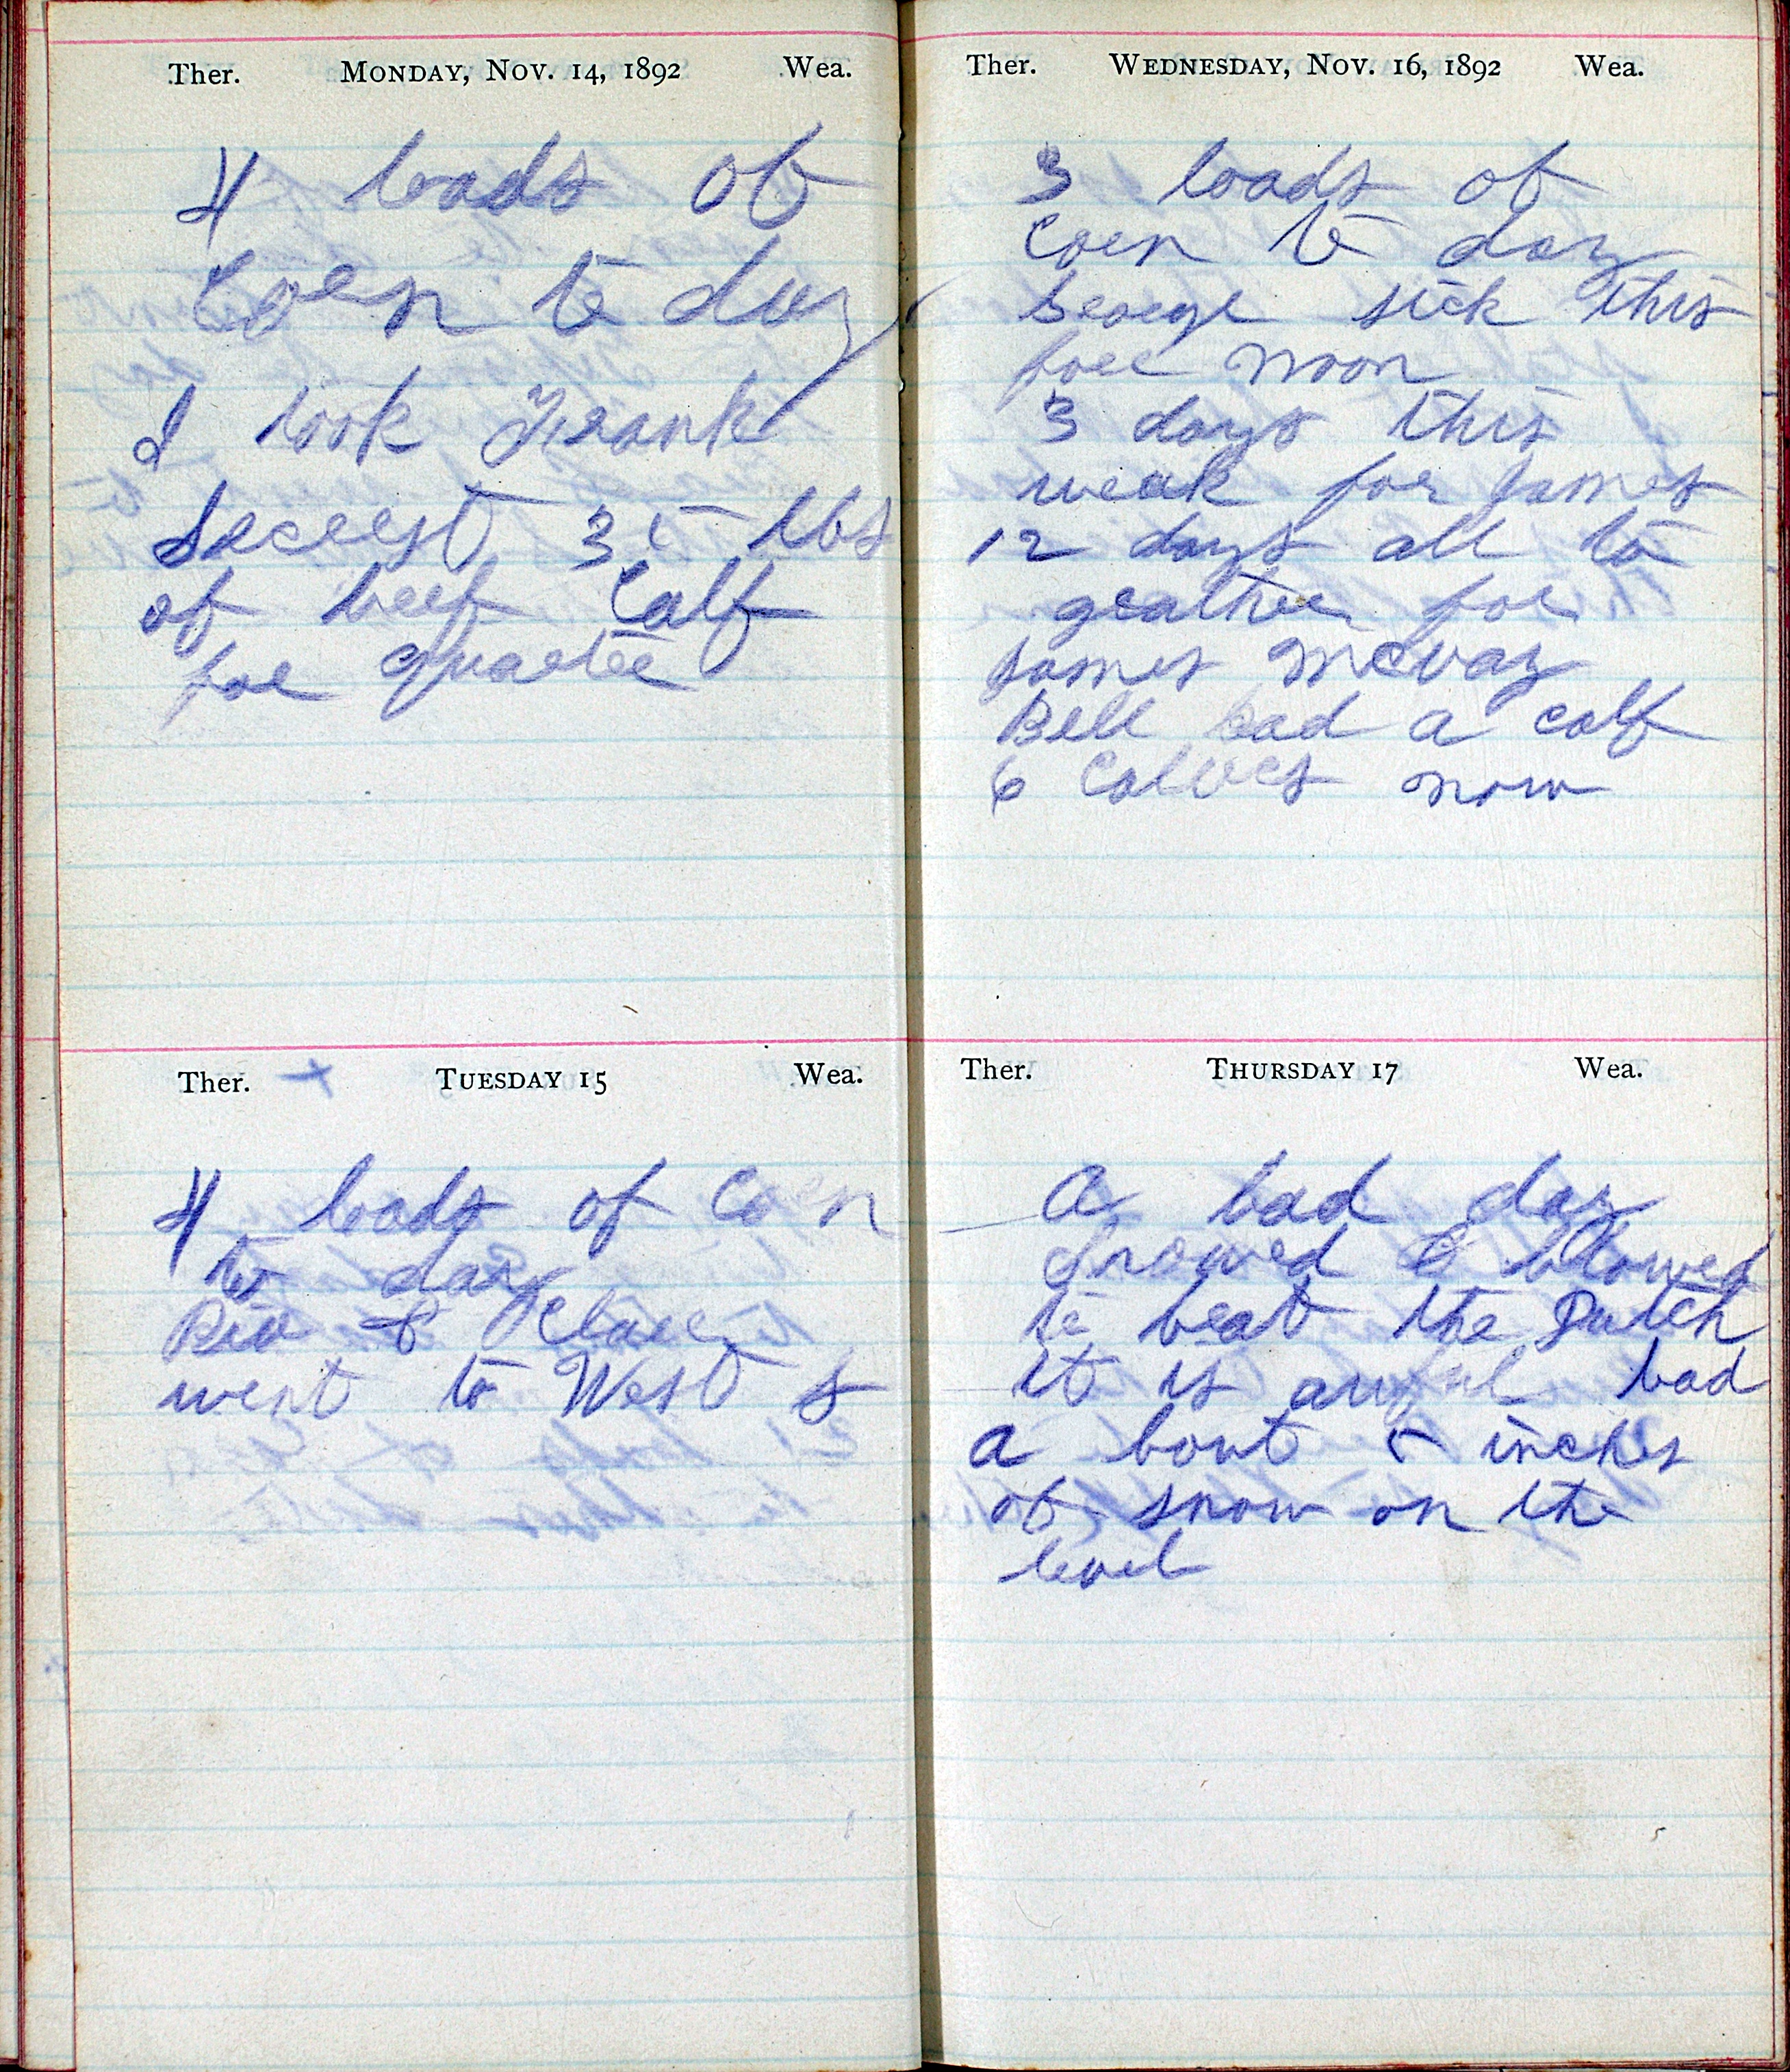 Ther. MONDAY, NOV. 14, 1892 Wea.
4 loads of
Corn to day
I took Frank
Secrest 35 lbs
of beef Calf
for quarter
Ther. + TUESDAY 15 Wea.
4 loads of Corn
to day
& Clare
went to West S
Ther. WEDNESDAY, NOV. 16, 1892 Wea.
3 loads of
Corn to day
George sick this
fore noon
3 days this
weak for James
12 days all to
geather for
James Mcvay
Bell had a calf
6 Calves now
Ther. THURSDAY 17 Wea.
A bad day
Snowed & blowed
to beat the Dutch
it is awful bad
a bout 5 inches
of snow on the
level